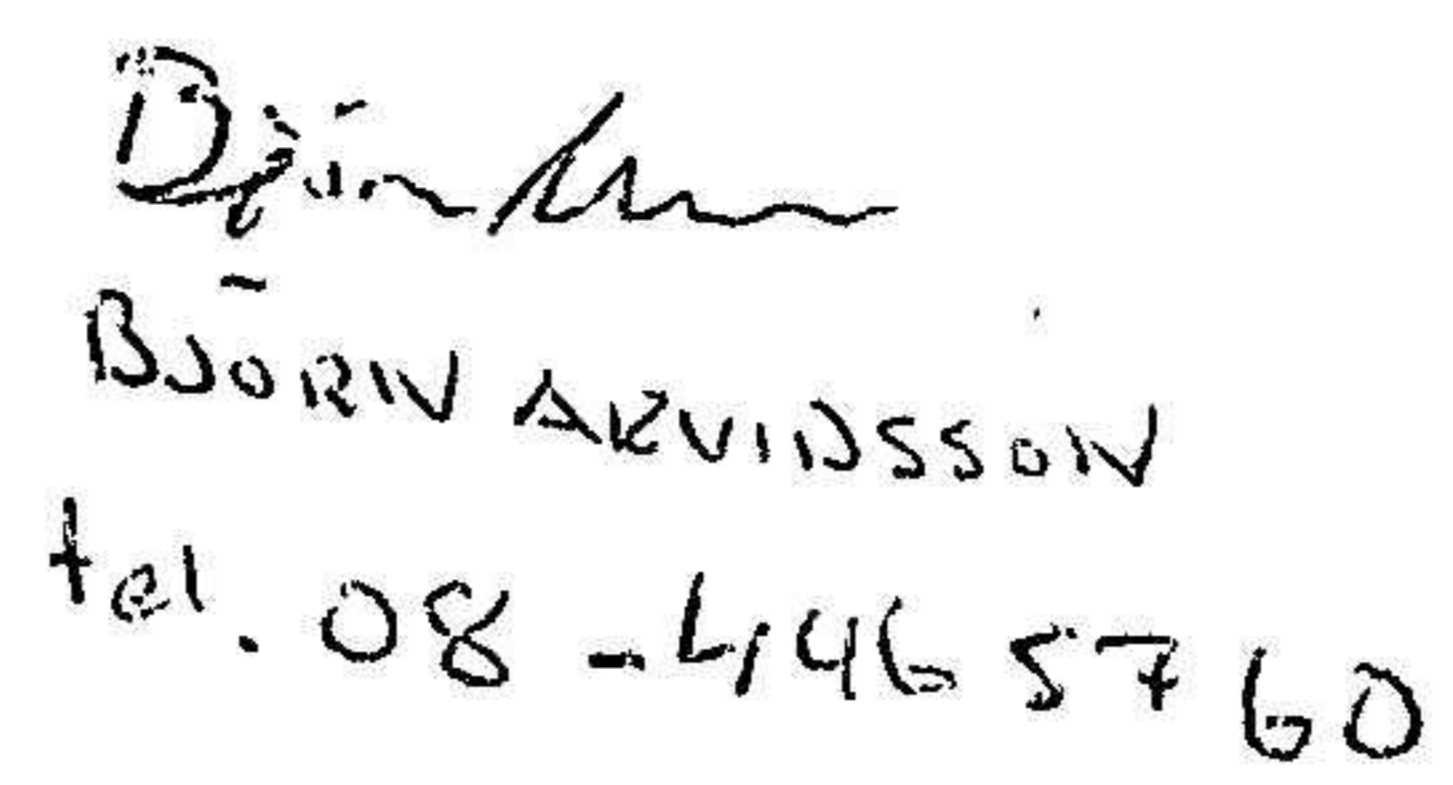 Björn
BJÖRN ARVIDSSON
tel. 08-446 57 60